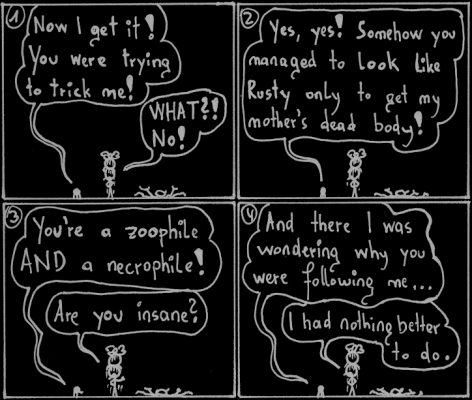 1
Now I get it!
You were trying
to trick me!
WHAT?!
No!
2
Yes, yes! Somehow you
managed to look like
Rusty only to get my
mother's dead body!
3
You're a zoophile
AND a necrophile!
Are you insane?
4
And there I was
wondering why you
were following me...
I had nothing better
to do.